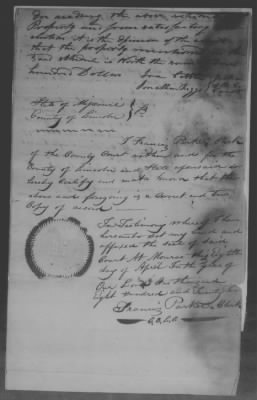 In making the above
Property and
it is the opinion of the
that the property mentioned
said schedule is worth the sum
hundred Dollars
Jonathan Riggs
State of Missouri
County of Lincoln
I Francis Parker Clerk
of the County Court within and for the
County of Lincoln and State aforesaid do
hereby Certify and make known that the
above and foregoing is a correct and true
Copy of record
In Testimony whereof I have
hereunto set my hand and
affixed the seal of said
Court At Monroe this eighth
day of April In the year of
Our Lord One thousand
eight hundred and
Francis Parker Clerk